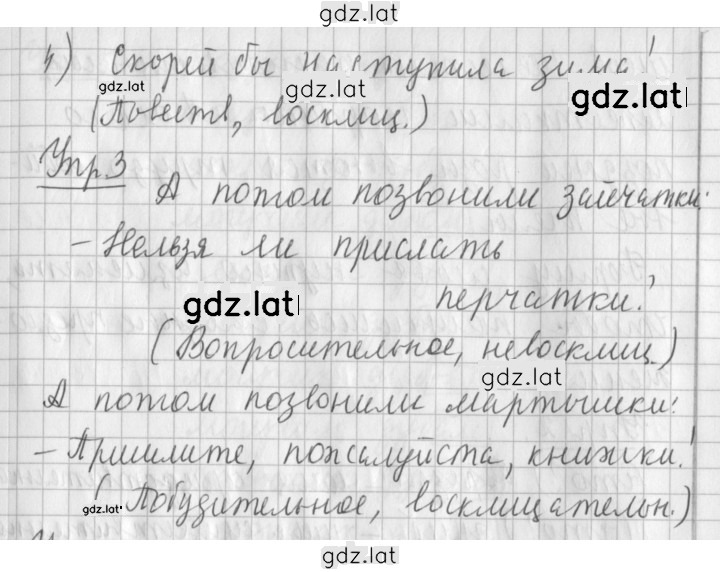 gdz.lat
4) Скорей бы наступила зима!
gdz.lat
gdz.lat
gdz.lat
(Повеств, восклиц.)
Упр 3
А потом позвонили зайчатки:
- Нельзя ли прислать
gdz.lat
перчатки?
(Вопросительное, невосклиц.)
gdz.lat
А потом позвонили мартышки:
- Пришлите, пожалуйста, книжки!
gdz.lat
(Побудительное, восклицательн.)
gdz.lat